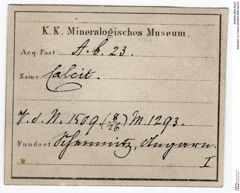 K. K. Mineralogisches Museum.
Acq. Post A. b. 23.
Name Calcit.
V. d. N. 1509. (8/26) M. 1293.
Fundort Schemnitz, Ungarn.
I